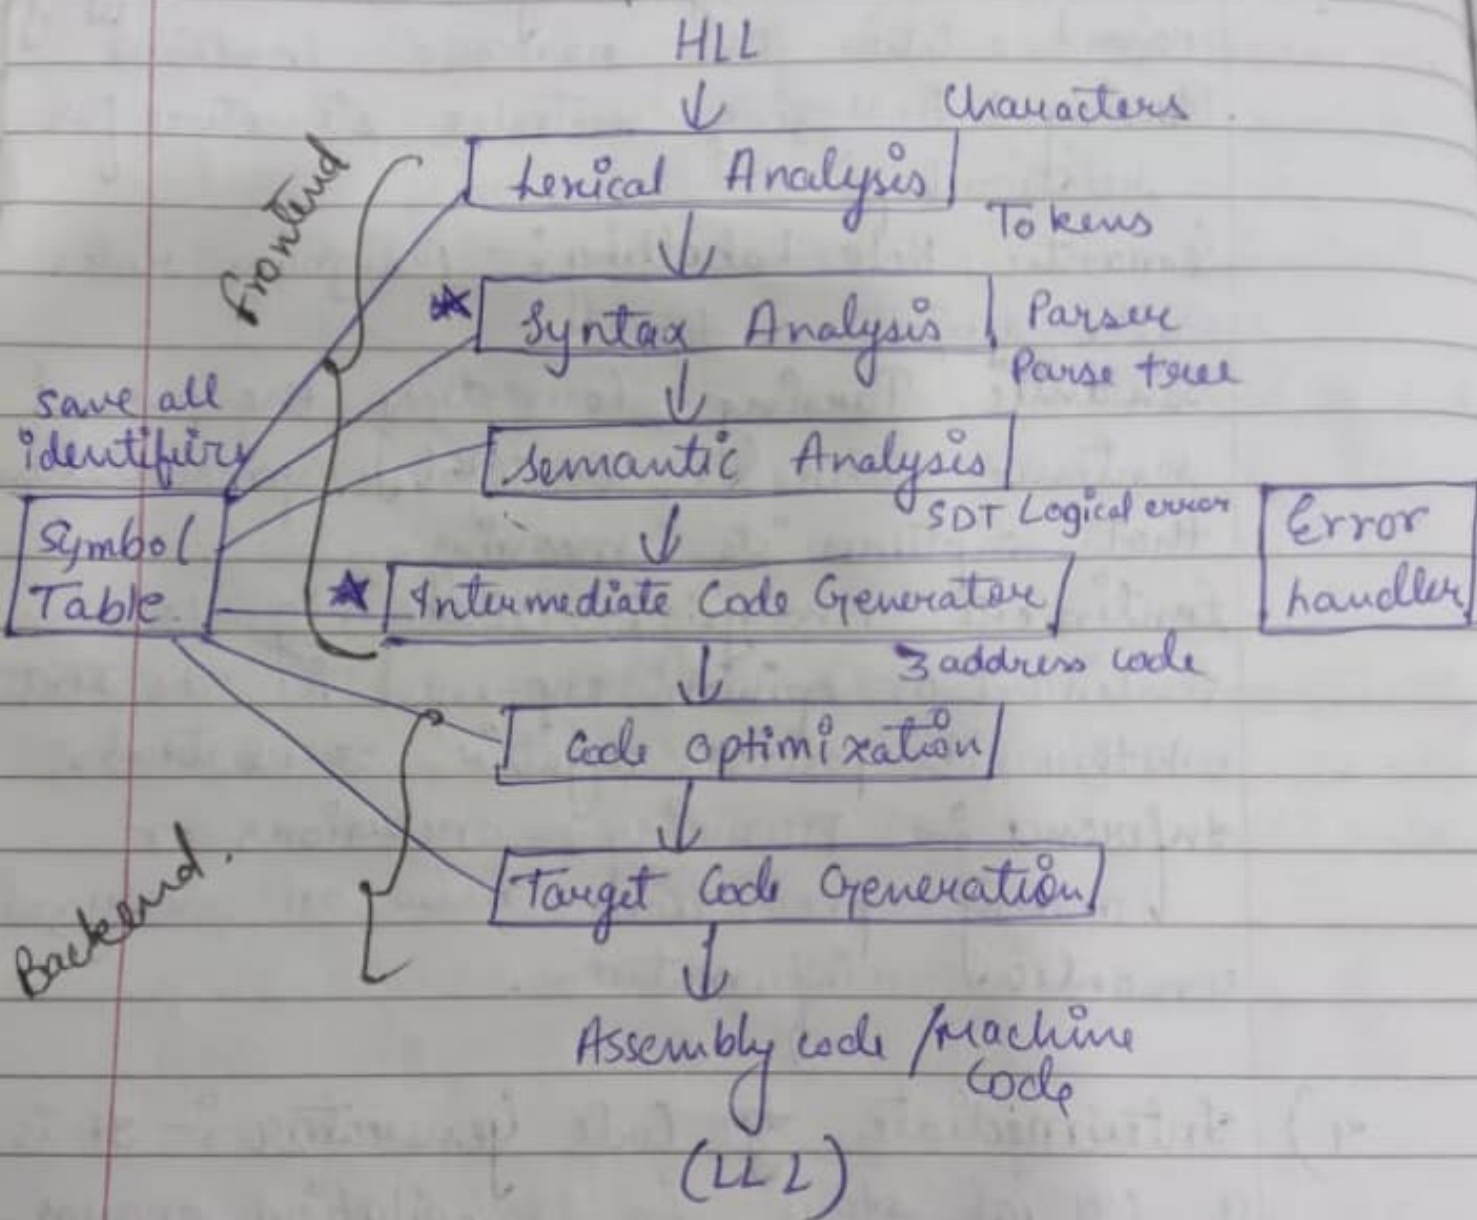 HLL
Characters
Lexical Analysis
Tokens
Frontend
Syntax Analysis
Parser
Parse tree
save all
identifiers
Semantic Analysis
SDT Logical error
Symbol
Table
Error
handler
Intermediate Code Generator
3 address code
Code optimization
Backend.
Target Code Generation
Assembly code / Machine
Code
(LLL)